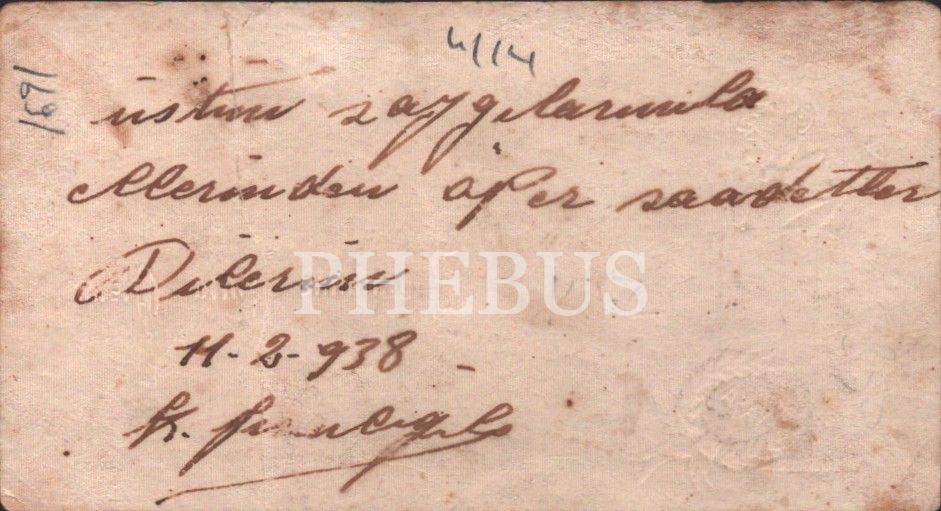 4/14
1691
üstün saygılarımla
ellerinden öper saadetler
Dilerim
11-2-938
K.
PHEBUS